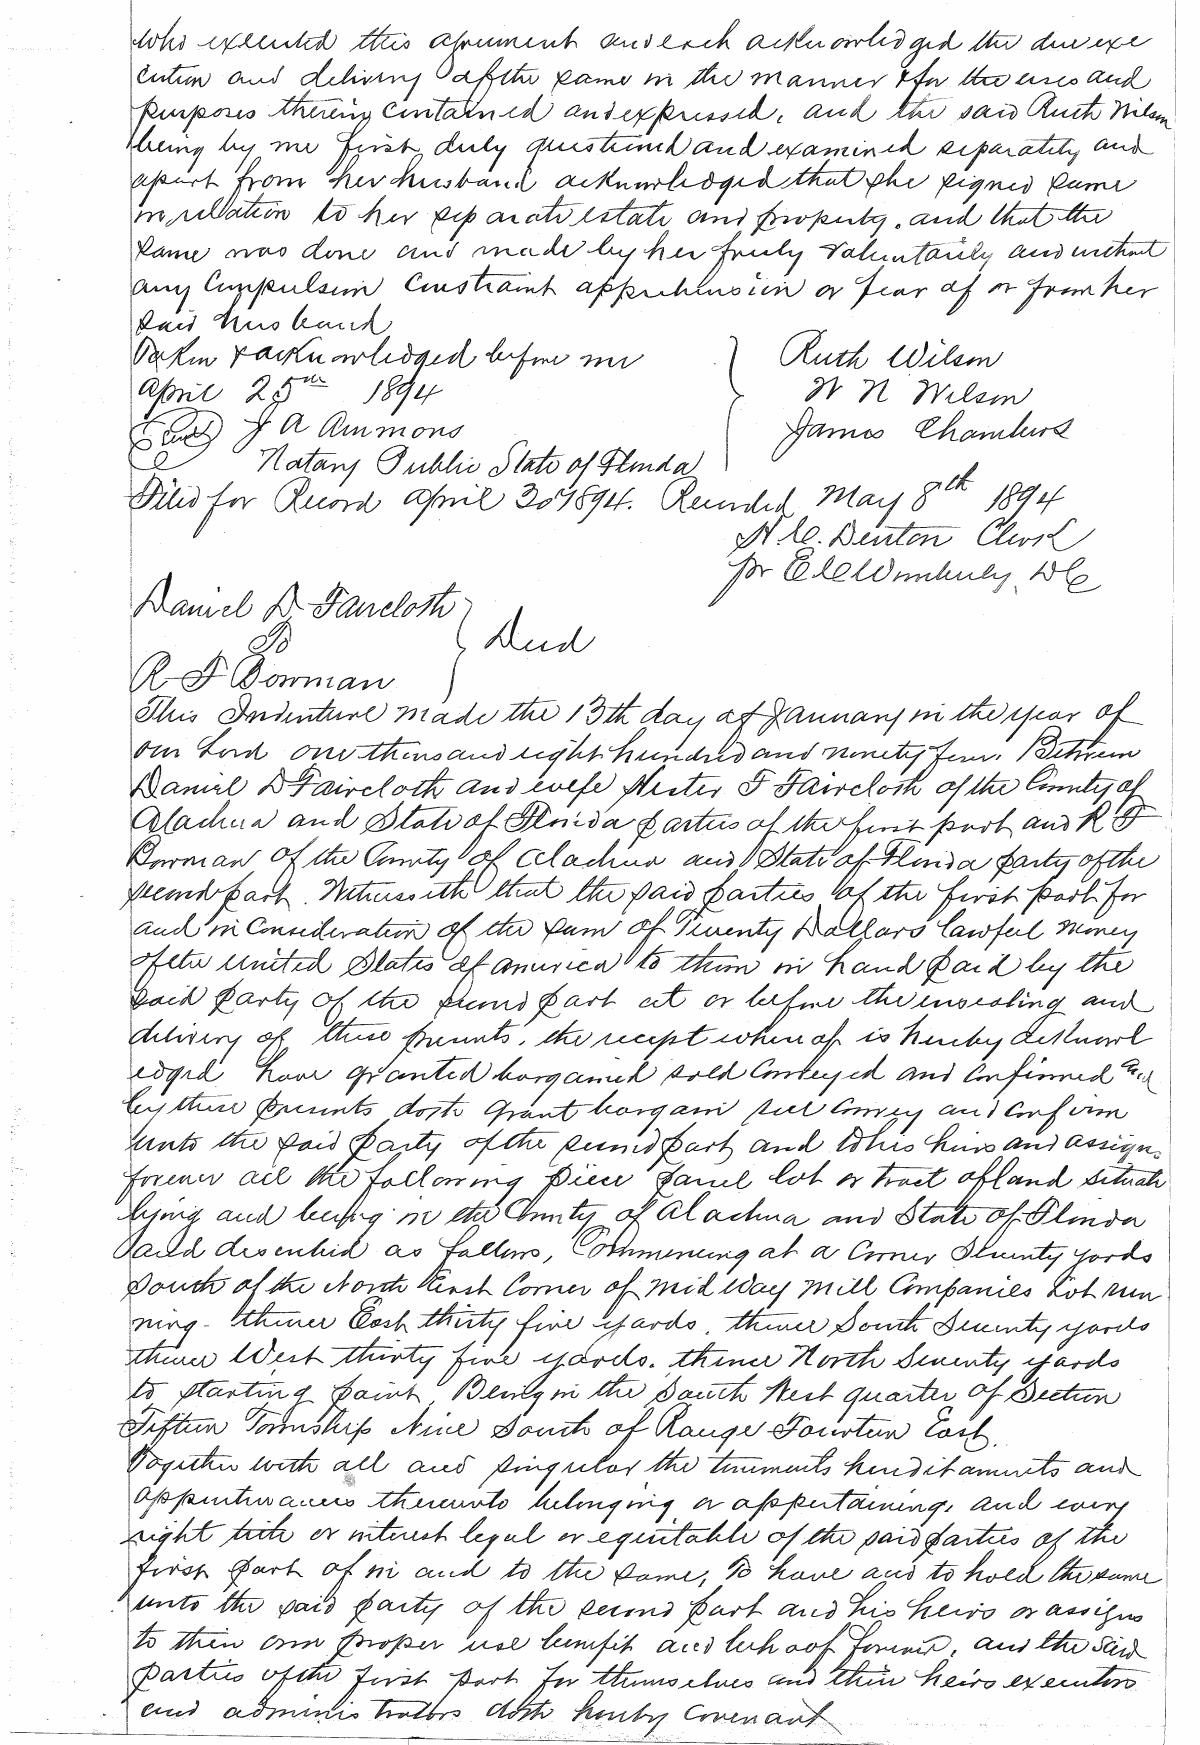 who executed this agreement and each acknowledged the due exe
cution and delivery of the same in the manner & for the uses and
purposes therein contained and expressed, and the said Ruth Wilson
being by me first duly questioned and examined separately and
apart from her husband acknowledged that she signed same
in relation to her separate estate and property, and that the
same was done and made by her freely voluntarily and without
any Compulsion Constraint apprehension or fear of or from her
said husband
Taken & acknowledged before me
April 25th 1894
(Seal) J A Ammons
Notary Public State of Florida
Ruth Wilson
W N Wilson
James Chambers
Filed for Record April 30 1894. Recorded May 8th 1894
H. C. Denton Clerk
pr E C Wimberly, DC
Daniel D Faircloth
To
R F Bowman
Deed
This Indenture made the 13th day of January in the year of
our Lord one thousand eight hundred and ninety four. Between
Daniel D Faircloth and wife Hester F Faircloth of the County of
Alachua and State of Florida parties of the first part and R F
Bowman of the County of Alachua and State of Florida party of the
second part. Witnesseth that the said parties of the first part for
and in Consideration of the sum of Twenty Dollars lawful money
of the united States of america to them in hand paid by the
said party of the second part at or before the ensealing and
delivery of these presents, the recept whereof is hereby acknowl
edged have granted bargained sold Conveyed and Confirmed and
by these presents doth grant bargain sell Convey and Confirm
unto the said party of the second part and to his heirs and assigns
forever all the following piece parcel lot or tract of land situate
lying and being in the County of Alachua and State of Florida
and described as follows, Commencing at a Corner Seventy yards
South of the North East Corner of Mid Way Mill Companies Lot run
ning - thence East thirty five yards, thence South Seventy yards
thence West thirty five yards. thence North Seventy yards
to starting point, Being in the South West quarter of Section
Fifteen Township Nine South of Range Fourteen East.
Together with all and singular the tenements hereditaments and
appurtenances thereunto belonging or appertaining, and every
right title or interest legal or equitable of the said parties of the
first part of in and to the same, To have and to hold the same
unto the said party of the second part and his heirs or assigns
to their own proper use benefit and behoof forever, and the said
parties of the first part for themselves and their heirs executors
and administrators doth hereby Covenant